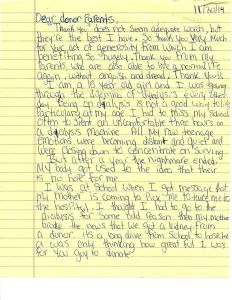 11/20/14
Dear donor Parents,
Thank you does not seem adequate words, but
they're the best I have. So thank you very much
for your act of generosity from which I am
benefiting so hugely. Thank you from my
Parents who are also able to live a normal life
again, without anguish and dread. Thank you!!
I am a 15 year old girl and I was going
through the dilemma of dialysis 3 every other
day. Being on dialysis is not a good way to live
particularly at my age. I had to miss my school
often to spent an uncomfortable three hours on
a dialysis machine. All my new teenage
emotions were becoming distant and quiet and
were closing down to concentrate on surviving.
But after a year the nightmare ended.
My body got used to the idea that there
is no hope for me.
I was at School when I got message that
my Mother is coming to pick me to take me to
the hospital. I thought I had to go to the
dialysis for some odd reason then my mother
broke the news that we got a kidney from
a donor. Its a long drive from School to hospital
I was only thinking how grateful I was
for you guy to donate